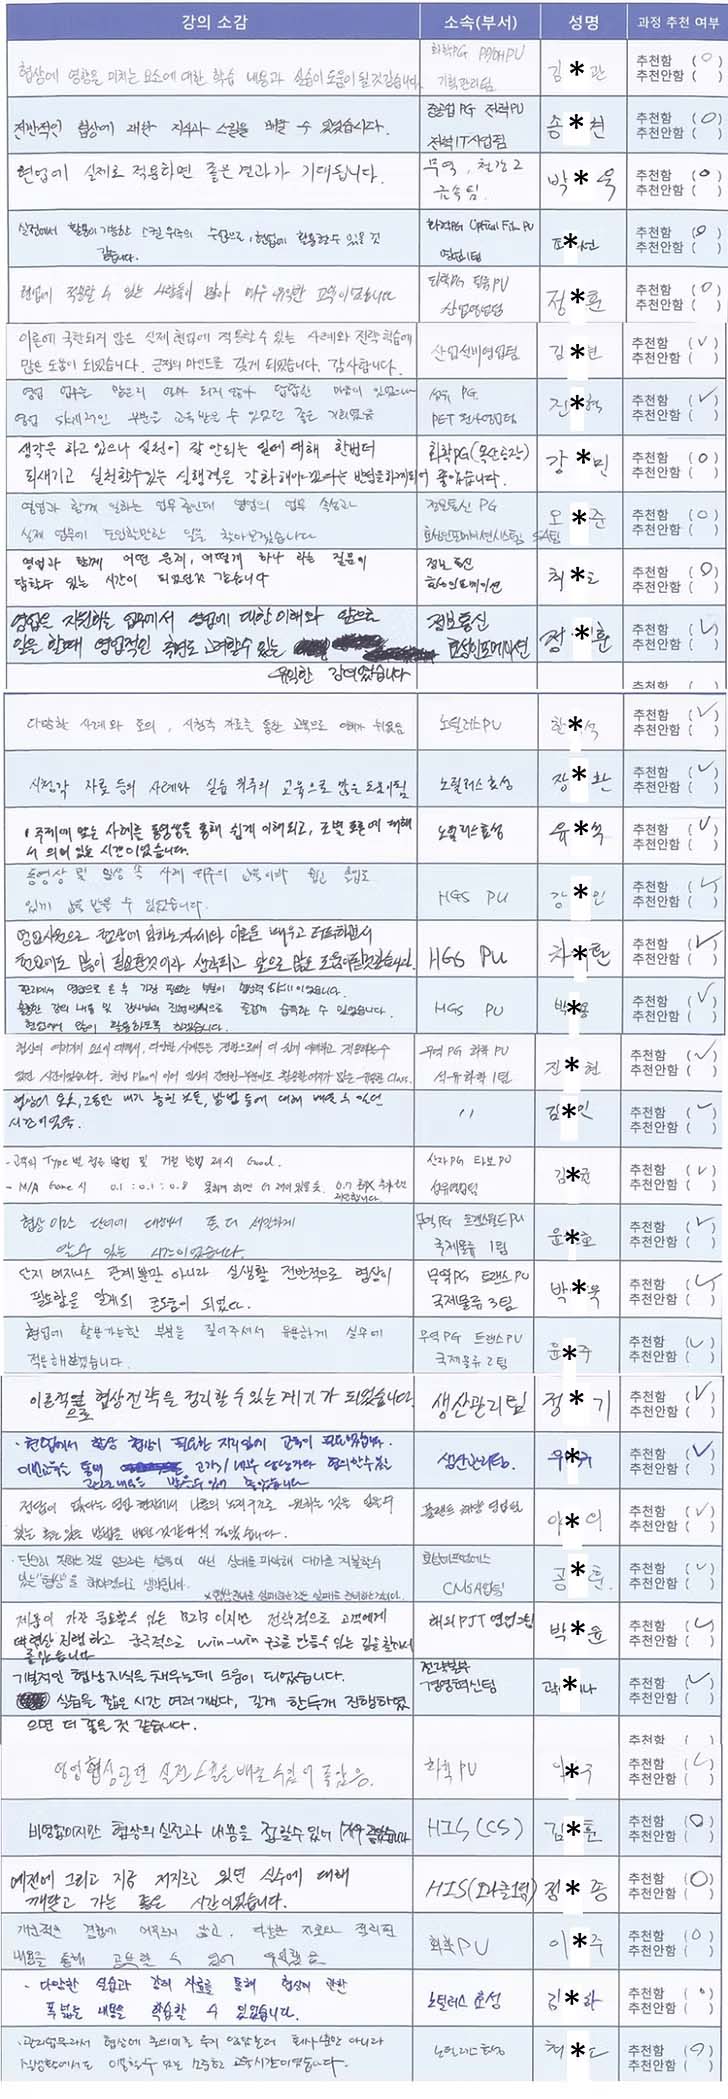 강의 소감 소속(부서) 성명 과정 추천 여부
협상에 영향을 미치는 요소에 대한 학습 내용과 실습이 도움이 될것같습니다. 화학PG 기획관리팀 김*관 추천함 (○) 추천안함 ( )
전반적인 협상에 대한 지식과 스킬을 배울 수 있었습니다. 중공업PG 전력PU 전력IT사업팀 송*헌 추천함 (○) 추천안함 ( )
현업에 실제로 적용하면 좋은 결과가 기대됩니다. 무역, 철강2 금속팀 박*욱 추천함 (○) 추천안함 ( )
실전에서 활용이 가능한 스킬 위주의 수업으로, 현업에 활용할 수 있을 것
같습니다. 화학PG Optical Film PU 영업1팀 조*선 추천함 (○) 추천안함 ( )
현업에 적용할 수 있는 사항들이 많아 매우 유익한 교육이었습니다 화학PG 필름PU 산업영업팀 정*훈 추천함 (○) 추천안함 ( )
이론에 국한되지 않은 실제 현업에 적용할 수 있는 사례와 전략 학습에
많은 도움이 되었습니다. 긍정의 마인드를 갖게 되었습니다. 감사합니다. 산업설비영업팀 김*현 추천함 (✓) 추천안함 ( )
영업 업무를 맡은지 얼마 되지 않아 답답한 마음이 있었으나
영업 부분을 교육받을 수 있었던 좋은 기회였음 섬유 PG PET 원사영업팀 진*혁 추천함 (✓) 추천안함 ( )
생각은 하고 있으나 실천이 잘 안되는 일에 대해 한번더
되새기고 실천할수있는 실행력을 강화해야겠다는 반성을하게되어 좋았습니다. 화학PG(옥산공장) 강*민 추천함 (○) 추천안함 ( )
영업과 함께 일하는 업무 중인데 영업의 업무 속성과
실제 업무에 도입할만한 일을 찾아보겠습니다 정보통신 PG 효성인포메이션시스템 SA팀 오*준 추천함 (○) 추천안함 ( )
영업과 함께 어떤 문제, 어떻게 하나 라는 질문에
답할수 있는 시간이 되었던것 같습니다 정보통신 효성인포메이션 최* 추천함 (○) 추천안함 ( )
영업을 지원하는 업무에서 영업에 대한 이해와 앞으로
일을 할때 영업적인 측면도 고려할 수 있는
유익한 강의였습니다 정보통신 효성인포메이션 정*훈 추천함 (✓) 추천안함 ( )
다양한 사례와 토의, 시청각 자료를 통한 교육으로 이해가 쉬웠음 노틸러스PU 한*석 추천함 (✓) 추천안함 ( )
시청각 자료 등의 사례와 실습 위주의 교육으로 많은 도움이됨 노틸러스효성 장*환 추천함 (✓) 추천안함 ( )
주제에 맞는 사례를 동영상을 통해 쉽게 이해되고, 조별 토론에 대해
서 의미 있는 시간이었습니다. 노틸러스효성 육*석 추천함 (✓) 추천안함 ( )
동영상 및 일상 속 사례 위주의 교육이라
있게 교육 받을 수 있었습니다. HGS PU 강*인 추천함 (✓) 추천안함 ( )
영업사원으로 협상에 임하는 자세와 이론을 배우고 터득하면서
현업에도 많이 필요한것이라 생각되고 앞으로 많은 도움이될것같습니다. HGS PU 차*환 추천함 (✓) 추천안함 ( )
관리에서 영업으로 온 후 가장 필요한 부분이 협상력 SKILL이었습니다.
훌륭한 강의 내용 및 강사님의 진행방식으로 즐겁게 습득할 수 있었습니다.
현업에서 많이 활용하도록 하겠습니다. HGS PU 박*용 추천함 (✓) 추천안함 ( )
협상의 여러가지 요소에 대해서, 다양한 사례 있던 시간이었습니다. 무역PG 화학 PU 석유화학 1팀 진*현 추천함 (✓) 추천안함 ( )
협상의 요소, 그동안 내가 놓친 것들, 방법 등에 대해 배울 수 있던
시간이었음. 〃 김*인 추천함 (✓) 추천안함 ( )
- 고객의 Type별 접근 방법 및 거절 방법 제시 Good.
- M/A Game 시 0.1 : 0.1 : 0.8 산자PG 타보PU 섬유영업팀 김*균 추천함 (✓) 추천안함 ( )
협상이라는 단어에 대해서 좀 더 세밀하게
알수 있는 시간이었습니다. 무역PG 트랜스월드PU 국제물류 1팀 윤*호 추천함 (✓) 추천안함 ( )
단지 비지니스 관계뿐만 아니라 실생활 전반적으로 협상이
필요함을 알게되 큰도움이 되었다. 무역PG 트랜스PU 국제물류 3팀 박*욱 추천함 (✓) 추천안함 ( )
현업에 활용가능한 부분을 짚어주셔서 유용하게 실무에
적용해보겠습니다. 무역PG 트랜스PU 국제물류 2팀 윤*주 추천함 (✓) 추천안함 ( )
이론적으로 협상전략을 정리할 수 있는 계기가 되었습니다. 생산관리팀 정*기 추천함 (✓) 추천안함 ( )
· 현업에서 항상 협상이 필요한 자리임에 교육이 필요했습니다.
이번교육을 통해 고객/내부 담당자와 협의할수있는
받을수 있어 좋았습니다 생산관리팀. 우* 추천함 (✓) 추천안함 ( )
전쟁이 영업 현장에서 나름의 원하는 것을 얻을수
있는 방법을 배운 것 같아서 좋았습니다. 플랜트 해양 영업팀 이* 추천함 (✓) 추천안함 ( )
· 단순히 원하는 것을 얻으려는 설득이 아닌 상대를 파악해 대가를 지불할수
있는 "협상"을 해야겠다고 생각됩니다. CMSA팀 공*훈 추천함 (✓) 추천안함 ( )
제품이 가장 중요할수 있는 B2B이지만 전략적으로 고객에게
협상 진행하고 궁극적으로 win-win 구조를 만들수 있는 길을 찾아서
좋았습니다 해외PJT 영업2팀 박*윤 추천함 (✓) 추천안함 ( )
기본적인 협상지식을 채우는데 도움이 되었습니다.
실습을 짧은 시간 여러개보다, 길게 한두개 진행하였
으면 더 좋을 것 같습니다. 전략본부 경영혁신팀 곽*나 추천함 (✓) 추천안함 ( )
영업협상관련 실전스킬을 배울 수 있어 좋았음. 화학PU 이*주 추천함 (✓) 추천안함 ( )
비영업이지만 협상의 실전과 내용을 접할수 있어 좋았습니다 HIS(CS) 김*훈 추천함 (○) 추천안함 ( )
예전에 그리고 지금 저지르고 있던 실수에 대해
깨닫고 가는 좋은 시간이었습니다. HIS(오라클팀) 정*종 추천함 (○) 추천안함 ( )
개인적인 경험에 머무르지 않고, 다양한 자료와 정리된
내용을 통해 공부할 수 있어 유익했음 화학PU 이*주 추천함 (○) 추천안함 ( )
· 다양한 실습과 강의 자료를 통해 협상에 관한
폭넓은 내용을 학습할 수 있었습니다. 노틸러스 효성 김*화 추천함 (○) 추천안함 ( )
· 관리업무라서 협상에 큰 의미를 두지 않았는데 회사뿐만 아니라
실생활에서도 이용할수 있는 소중한 교육시간이었습니다. 노틸러스효성 최* 추천함 (○) 추천안함 ( )